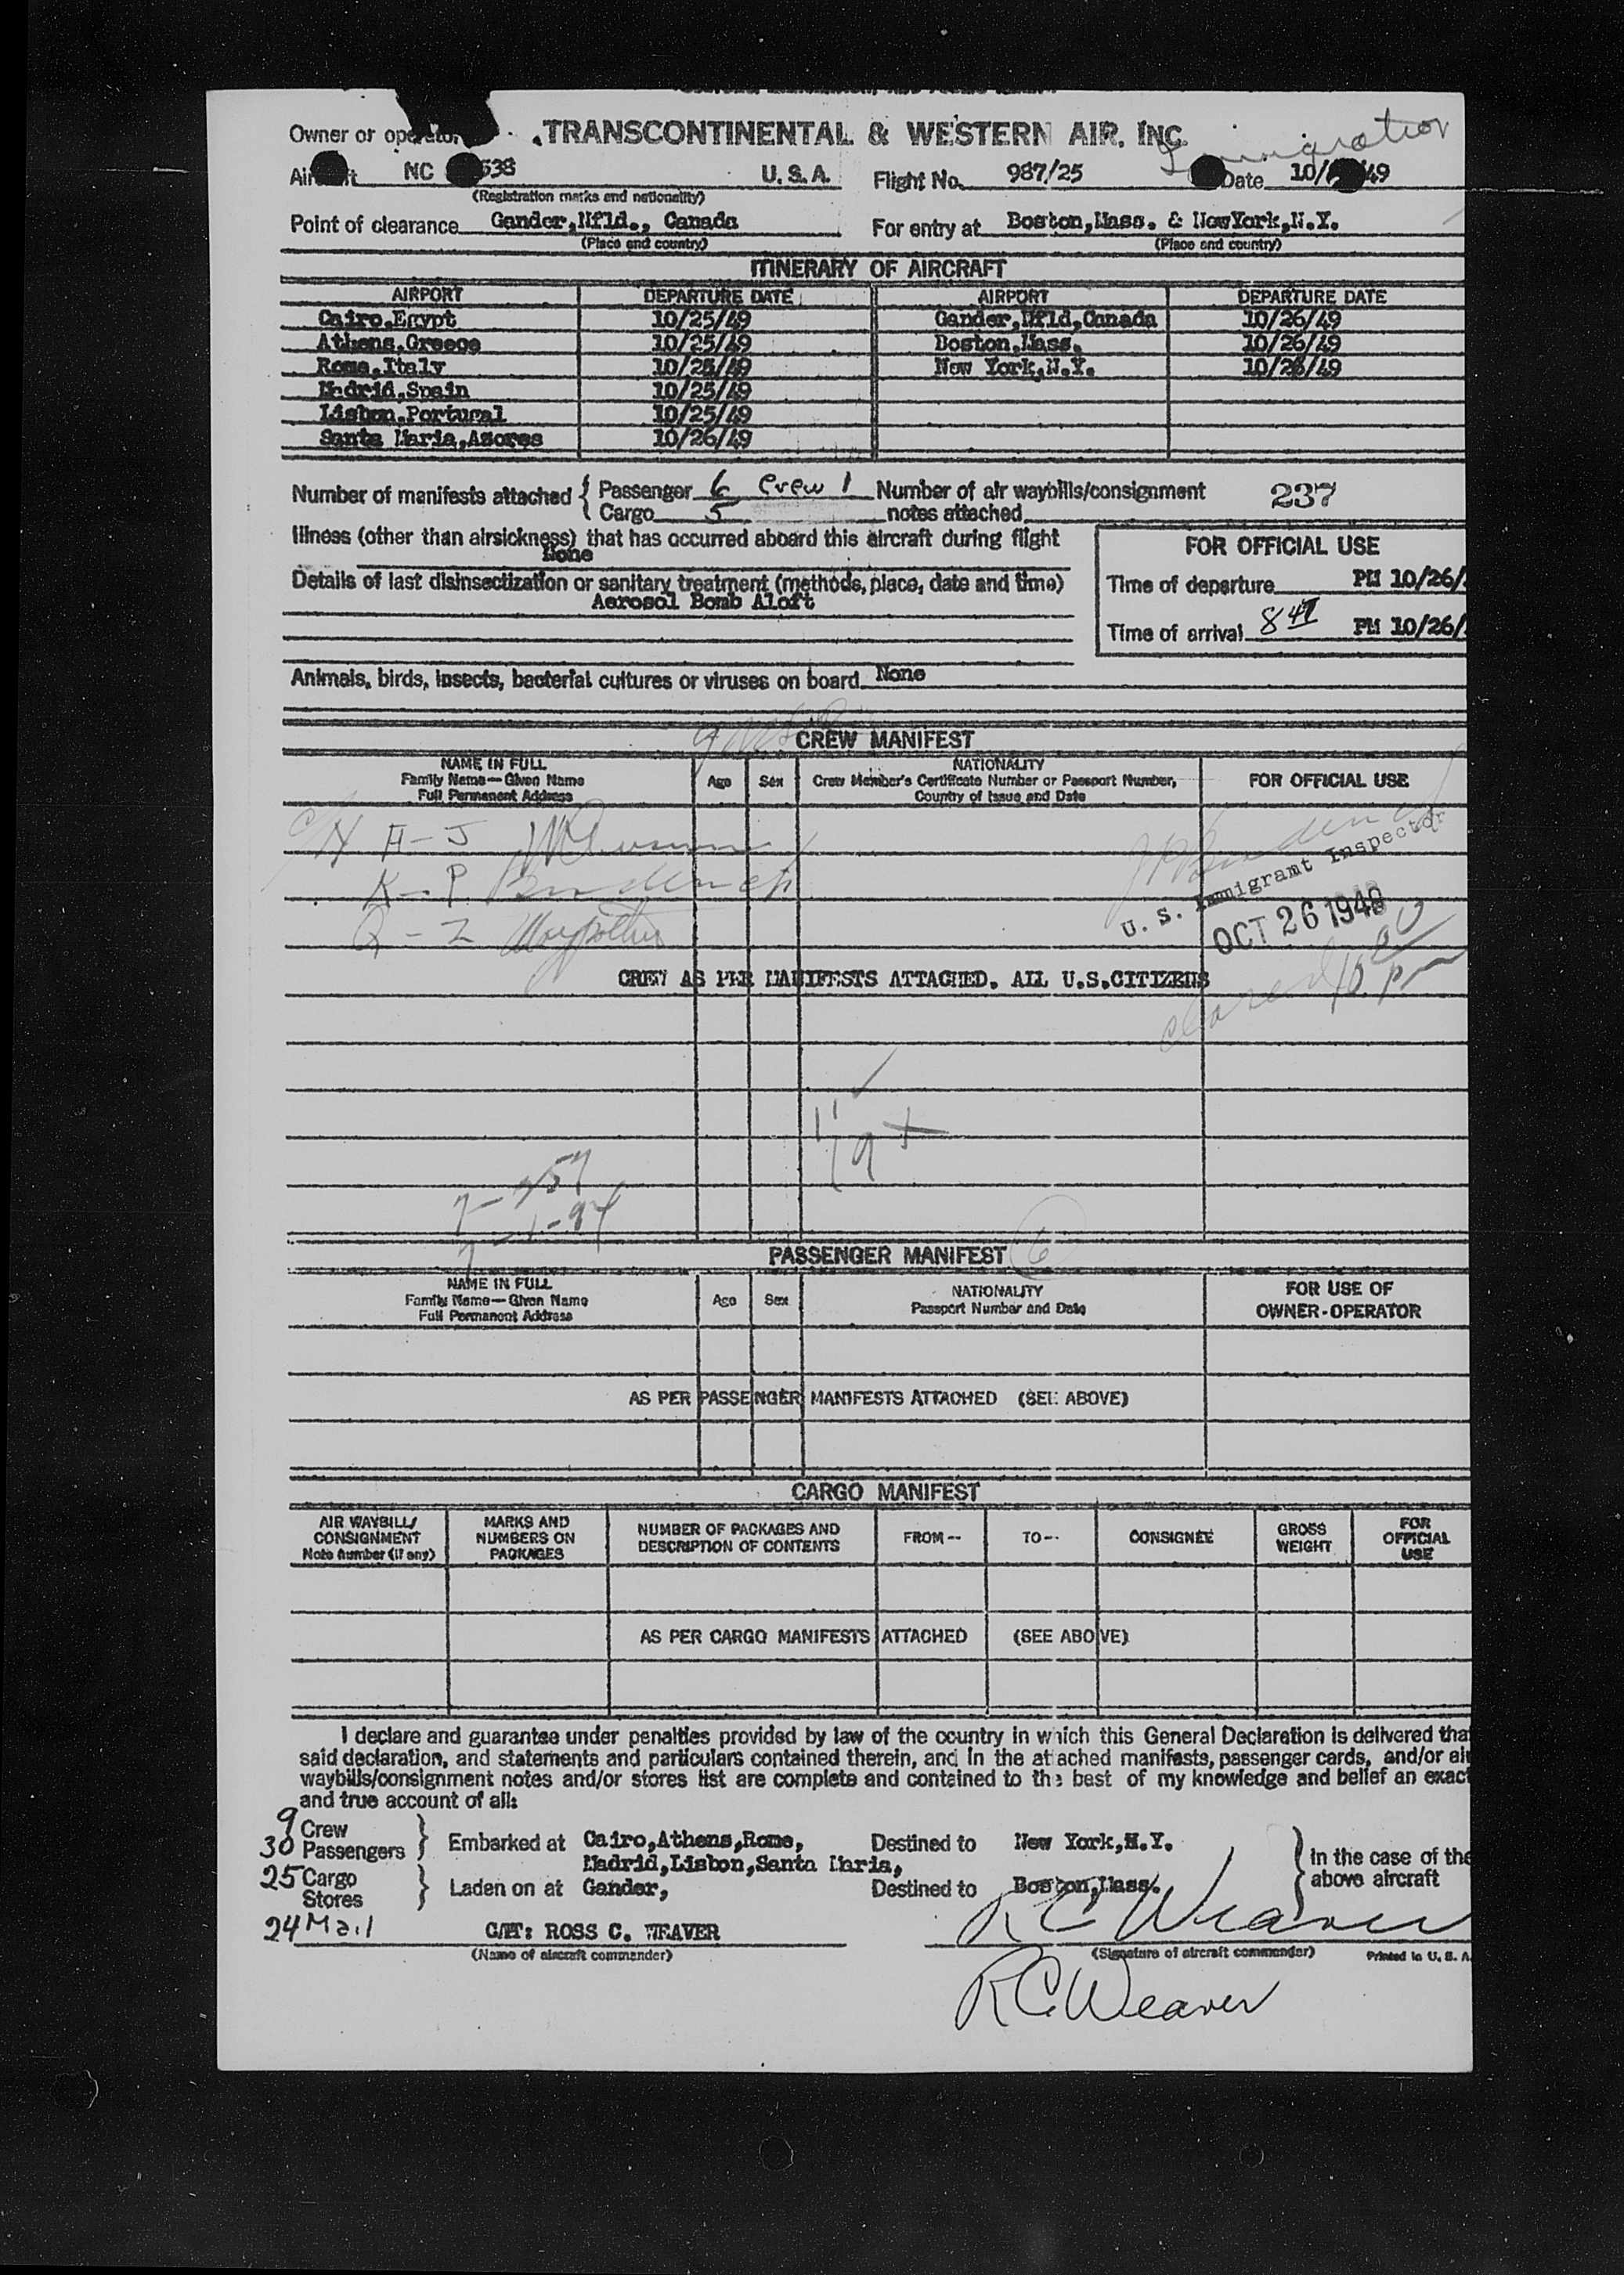 Owner or operator TRANSCONTINENTAL & WESTERN AIR, INC. Immigration
Aircraft NC 538 U.S.A. Flight No. 987/25 Date 10/ /49
(Registration marks and nationality)
Point of clearance Gander,Nfld., Canada For entry at Boston,Mass. & NewYork,N.Y.
(Place and country) (Place and country)
ITINERARY OF AIRCRAFT
AIRPORT DEPARTURE DATE AIRPORT DEPARTURE DATE
Cairo,Egypt 10/25/49 Gander,Nfld,Canada 10/26/49
Athens,Greece 10/25/49 Boston,Mass. 10/26/49
Rome,Italy 10/25/49 New York,N.Y. 10/26/49
Madrid,Spain 10/25/49
Lisbon,Portugal 10/25/49
Santa Maria,Azores 10/26/49
Number of manifests attached { Passenger 6 Crew 1 Number of air waybills/consignment 237
Cargo 5 notes attached
Illness (other than airsickness) that has occurred aboard this aircraft during flight
None
FOR OFFICIAL USE
Details of last disinsectization or sanitary treatment (methods, place, date and time)
Aerosol Bomb Aloft
Time of departure PM 10/26/
Time of arrival 8 47 PM 10/26/
Animals, birds, insects, bacterial cultures or viruses on board None
CREW MANIFEST
NAME IN FULL
Family Name—Given Name
Full Permanent Address
Age Sex
NATIONALITY
Crew Member's Certificate Number or Passport Number,
Country of Issue and Date
FOR OFFICIAL USE
H-J
K-P
Q-Z
U. S. Immigrant Inspector
OCT 26 1949
CREW AS PER MANIFESTS ATTACHED. ALL U.S.CITIZENS
PASSENGER MANIFEST 6
NAME IN FULL
Family Name—Given Name
Full Permanent Address
Age Sex
NATIONALITY
Passport Number and Date
FOR USE OF
OWNER-OPERATOR
AS PER PASSENGER MANIFESTS ATTACHED (SEE ABOVE)
CARGO MANIFEST
AIR WAYBILL/
CONSIGNMENT
Note Number (if any)
MARKS AND
NUMBERS ON
PACKAGES
NUMBER OF PACKAGES AND
DESCRIPTION OF CONTENTS
FROM-- TO-- CONSIGNEE
GROSS
WEIGHT
FOR
OFFICIAL
USE
AS PER CARGO MANIFESTS ATTACHED (SEE ABOVE)
I declare and guarantee under penalties provided by law of the country in which this General Declaration is delivered tha
said declaration, and statements and particulars contained therein, and in the attached manifests, passenger cards, and/or ai
waybills/consignment notes and/or stores list are complete and contained to the best of my knowledge and belief an exac
and true account of all:
9 Crew
30 Passengers } Embarked at Cairo,Athens,Rome, Destined to New York,N.Y.
Madrid,Lisbon,Santa Maria,
25 Cargo
Stores } Laden on at Gander, Destined to Boston,Mass.
} In the case of the
above aircraft
24 Mail
CAPT: ROSS C. WEAVER R C Weaver
(Name of aircraft commander) (Signature of aircraft commander) Printed in U. S. A.
R C Weaver